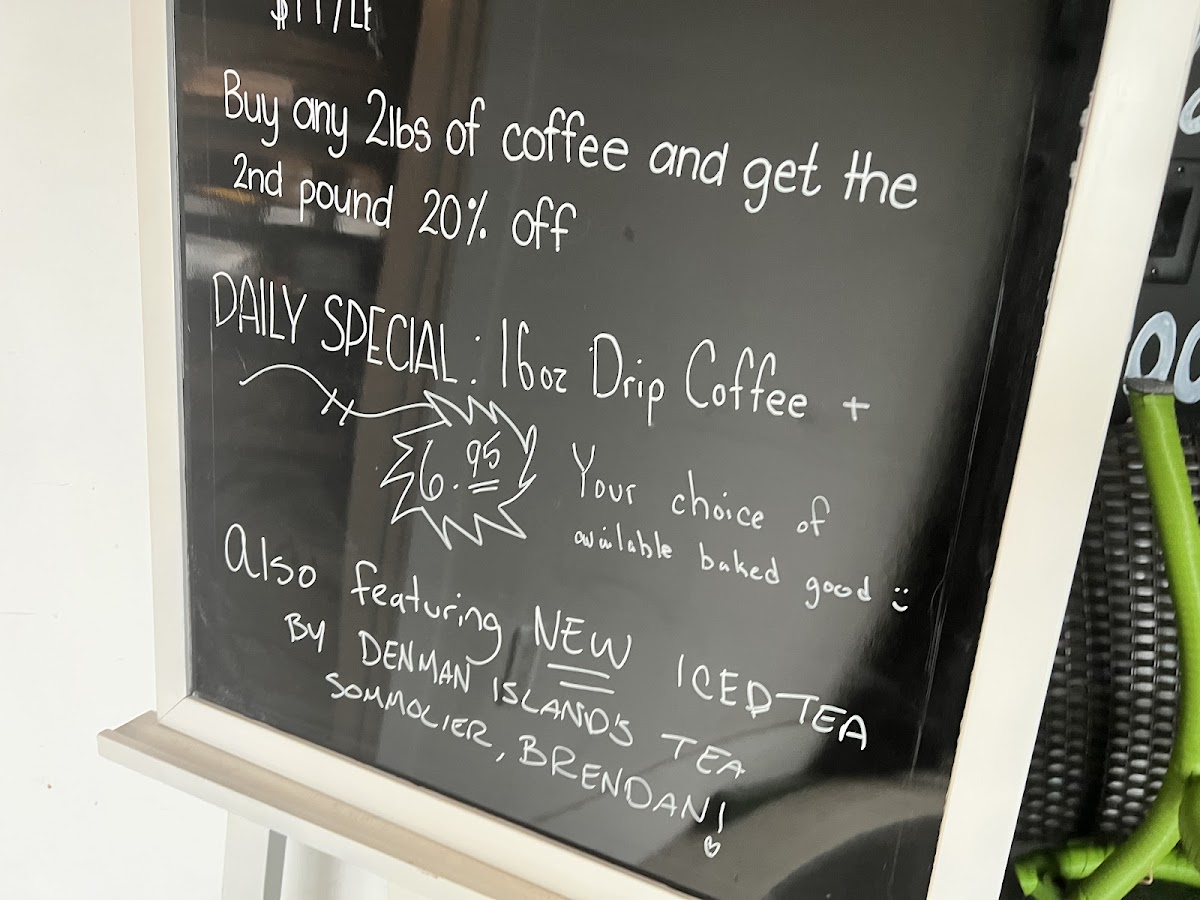 Buy any 2lbs of coffee and get the
2nd pound 20% off
DAILY SPECIAL: 16oz Drip Coffee +
6.95
Your choice of
available baked good :)
Also featuring NEW ICED TEA
BY DENMAN ISLAND'S TEA
SOMMOLIER, BRENDAN!